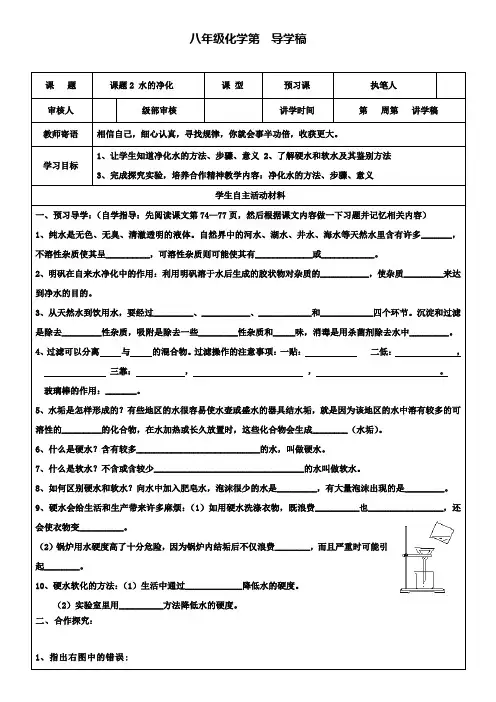 八年级化学第 导学稿
课 题 课题2 水的净化 课 型 预习课 执笔人
审核人 级部审核 讲学时间 第 周第 讲学稿
教师寄语 相信自己，细心认真，寻找规律，你就会事半功倍，收获更大。
学习目标 1、让学生知道净化水的方法、步骤、意义 2、了解硬水和软水及其鉴别方法
3、完成探究实验，培养合作精神教学内容：净化水的方法、步骤、意义
学生自主活动材料
一、预习导学：（自学指导：先阅读课文第74—77页，然后根据课文内容做一下习题并记忆相关内容）
1、纯水是无色、无臭、清澈透明的液体。自然界中的河水、湖水、井水、海水等天然水里含有许多_______，
不溶性杂质使其呈__________，可溶性杂质则可能使其有_____________或____________。
2、明矾在自来水净化中的作用：利用明矾溶于水后生成的胶状物对杂质的___________，使杂质_________来达
到净水的目的。
3、从天然水到饮用水，要经过_________、___________、___________和____________四个环节。沉淀和过滤
是除去_________性杂质，吸附是除去一些_________性杂质和_____味，消毒是用杀菌剂除去水中_________。
4、过滤可以分离____与____的混合物。过滤操作的注意事项：一贴：___________ 二低：____________，
____________ 三靠：__________，____________________，________________________。
玻璃棒的作用：_______。
5、水垢是怎样形成的？有些地区的水很容易使水壶或盛水的器具结水垢，就是因为该地区的水中溶有较多的可
溶性的_________的化合物，在水加热或长久放置时，这些化合物会生成________（水垢）。
6、什么是硬水？含有较多____________________________的水，叫做硬水。
7、什么是软水？不含或含较少__________________________________的水叫做软水。
8、如何区别硬水和软水？向水中加入肥皂水，泡沫很少的水是_________，有大量泡沫出现的是_________。
9、硬水会给生活和生产带来许多麻烦：（1）如用硬水洗涤衣物，既浪费__________也_________________，还
会使衣物变__________。
（2）锅炉用水硬度高了十分危险，因为锅炉内结垢后不仅浪费________，而且严重时可能引
起________。
10、硬水软化的方法：（1）生活中通过_____________降低水的硬度。
（2）实验室里用__________方法降低水的硬度。
二、合作探究：
1、指出右图中的错误：